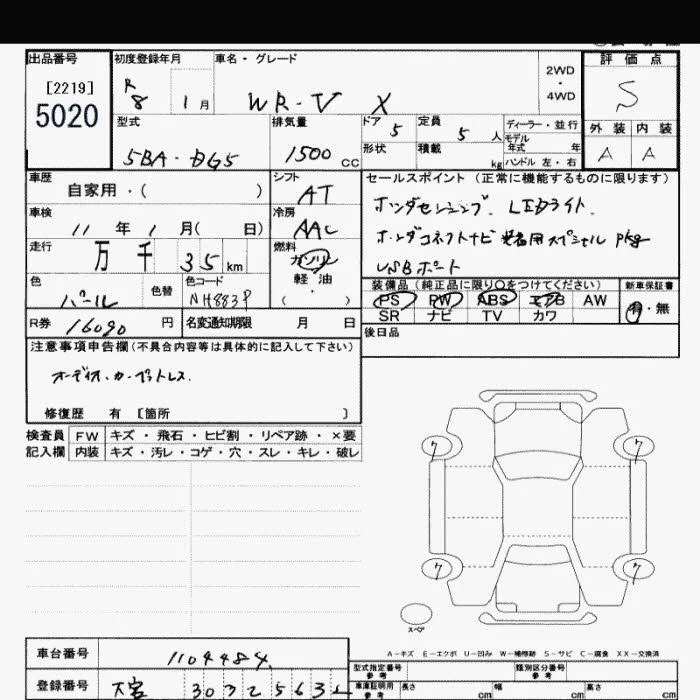 出品番号 初度登録年月 車名・グレード 評価点
[2219] R 8 1月 WR-V X 2WD・4WD S
5020
型式 排気量 ドア 5 定員 5人 ディーラー・並行 外装 内装
5BA-DG5 1500cc 形状 積載 kg モデル年式 年 ハンドル 左・右 A A
車歴 シフト セールスポイント (正常に機能するものに限ります)
自家用・( ) AT ホンダセンシング. LEDライト.
車検 冷房
11年1月( 日) AAC ホンダコネクトナビ 装着用スペシャル Pkg
走行 燃料 USBポート
万 千 35km ガソリン 軽油 ( )
装備品 (純正品に限り○をつけてください) 新車保証書
色 色替 色コード PS PW ABS エアB AW 有・無
パール NH883P SR ナビ TV カワ
R券 16090円 名変通知期限 月 日 後日品
注意事項申告欄(不具合内容等は具体的に記入して下さい)
オーディオ.カーペットレス.
修復歴 有 [箇所 ]
検査員 FW キズ・飛石・ヒビ割・リペア跡・×要
記入欄 内装 キズ・汚レ・コゲ・穴・スレ・キレ・破レ
7 7
7 7
スペア
A-キズ E-エクボ U-凹み W-補修跡 S-サビ C-腐食 XX-交換済
車台番号 1104484 型式指定番号 参考 類別区分番号 参考
登録番号 大宮 302 2 5634 車庫証明用 参考 長さ cm 幅 cm 高さ cm